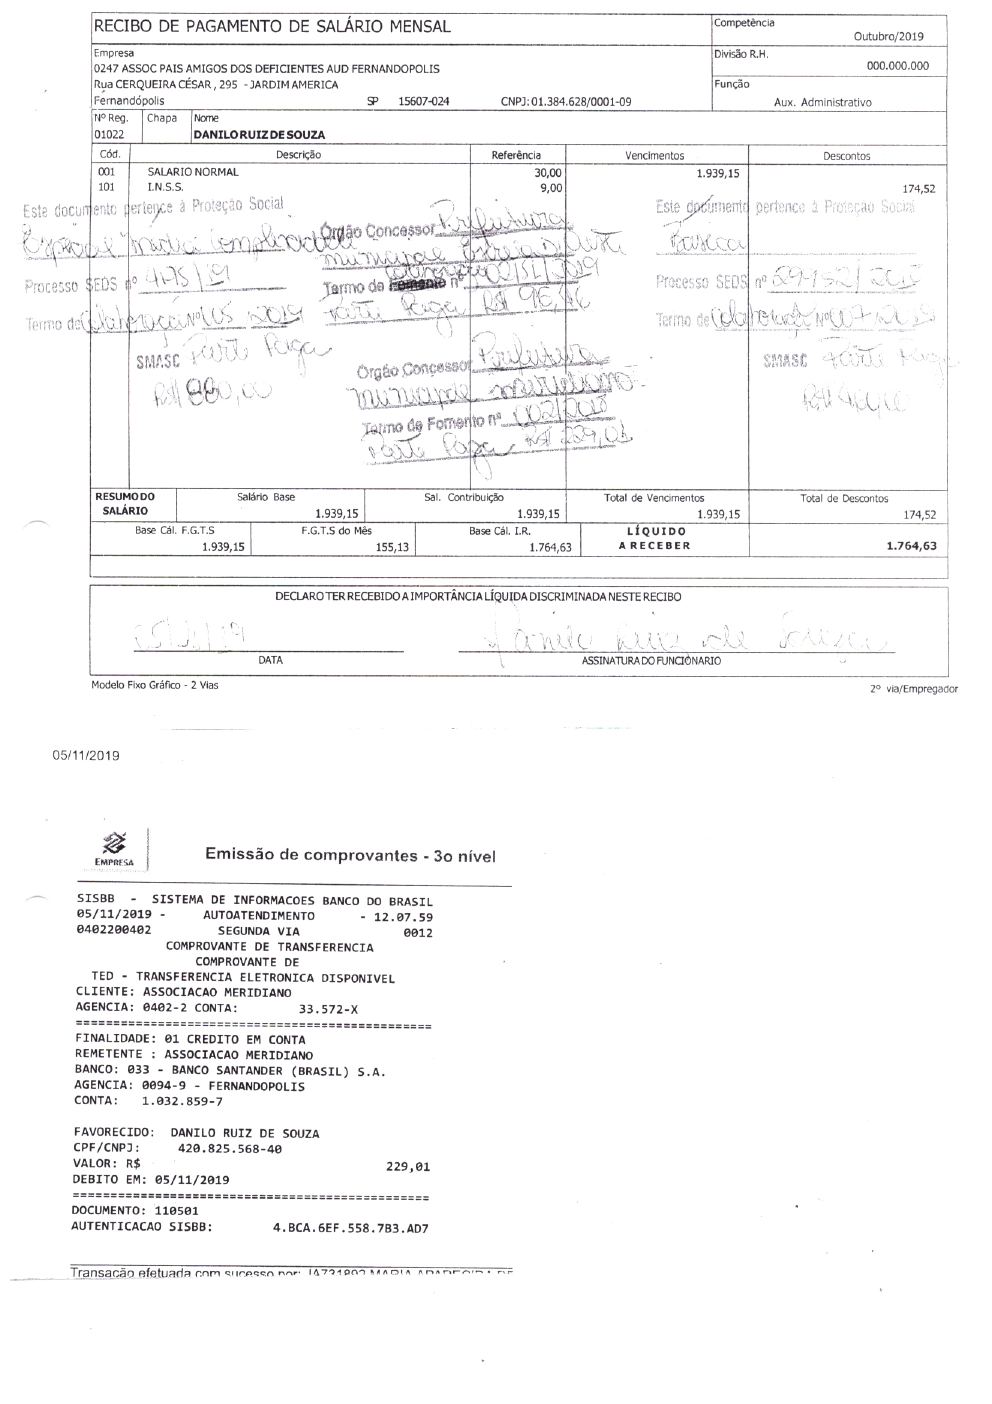 RECIBO DE PAGAMENTO DE SALÁRIO MENSAL
Competência
Outubro/2019
Empresa
0247 ASSOC PAIS AMIGOS DOS DEFICIENTES AUD FERNANDOPOLIS
Rua CERQUEIRA CÉSAR , 295 - JARDIM AMERICA
Fernandópolis SP 15607-024 CNPJ: 01.384.628/0001-09
Divisão R.H.
000.000.000
Função
Aux. Administrativo
Nº Reg. Chapa Nome
01022 DANILO RUIZ DE SOUZA
Cód. Descrição Referência Vencimentos Descontos
001 SALARIO NORMAL 30,00 1.939,15
101 I.N.S.S. 9,00 174,52
Este documento pertence à Proteção Social
Especial
Processo SEDS nº
Termo de Colaboração 2019
SMASC Parte Paga
R$ 880,00
Órgão Concessor Prefeitura
municipal
Termo de Fomento nº
Parte Paga R$
Órgão Concessor Prefeitura
municipal meridiano
Termo de Fomento nº 002/2018
Parte Paga R$ 229,01
Este documento pertence à Proteção Social
Básica
Processo SEDS nº
Termo de Colaboração
SMASC Parte Paga
R$
RESUMO DO SALÁRIO
Salário Base Sal. Contribuição Total de Vencimentos Total de Descontos
1.939,15 1.939,15 1.939,15 174,52
Base Cál. F.G.T.S F.G.T.S do Mês Base Cál. I.R. LÍQUIDO A RECEBER
1.939,15 155,13 1.764,63 1.764,63
DECLARO TER RECEBIDO A IMPORTÂNCIA LÍQUIDA DISCRIMINADA NESTE RECIBO
Danilo Ruiz de Souza
DATA ASSINATURA DO FUNCIONARIO
Modelo Fixo Gráfico - 2 Vias
2º via/Empregador
05/11/2019
EMPRESA
Emissão de comprovantes - 3o nível
SISBB - SISTEMA DE INFORMACOES BANCO DO BRASIL
05/11/2019 - AUTOATENDIMENTO - 12.07.59
0402200402 SEGUNDA VIA 0012
COMPROVANTE DE TRANSFERENCIA
COMPROVANTE DE
TED - TRANSFERENCIA ELETRONICA DISPONIVEL
CLIENTE: ASSOCIACAO MERIDIANO
AGENCIA: 0402-2 CONTA: 33.572-X
================================================
FINALIDADE: 01 CREDITO EM CONTA
REMETENTE : ASSOCIACAO MERIDIANO
BANCO: 033 - BANCO SANTANDER (BRASIL) S.A.
AGENCIA: 0094-9 - FERNANDOPOLIS
CONTA: 1.032.859-7
FAVORECIDO: DANILO RUIZ DE SOUZA
CPF/CNPJ: 420.825.568-40
VALOR: R$ 229,01
DEBITO EM: 05/11/2019
================================================
DOCUMENTO: 110501
AUTENTICACAO SISBB: 4.BCA.6EF.558.7B3.AD7
Transação efetuada com sucesso por: